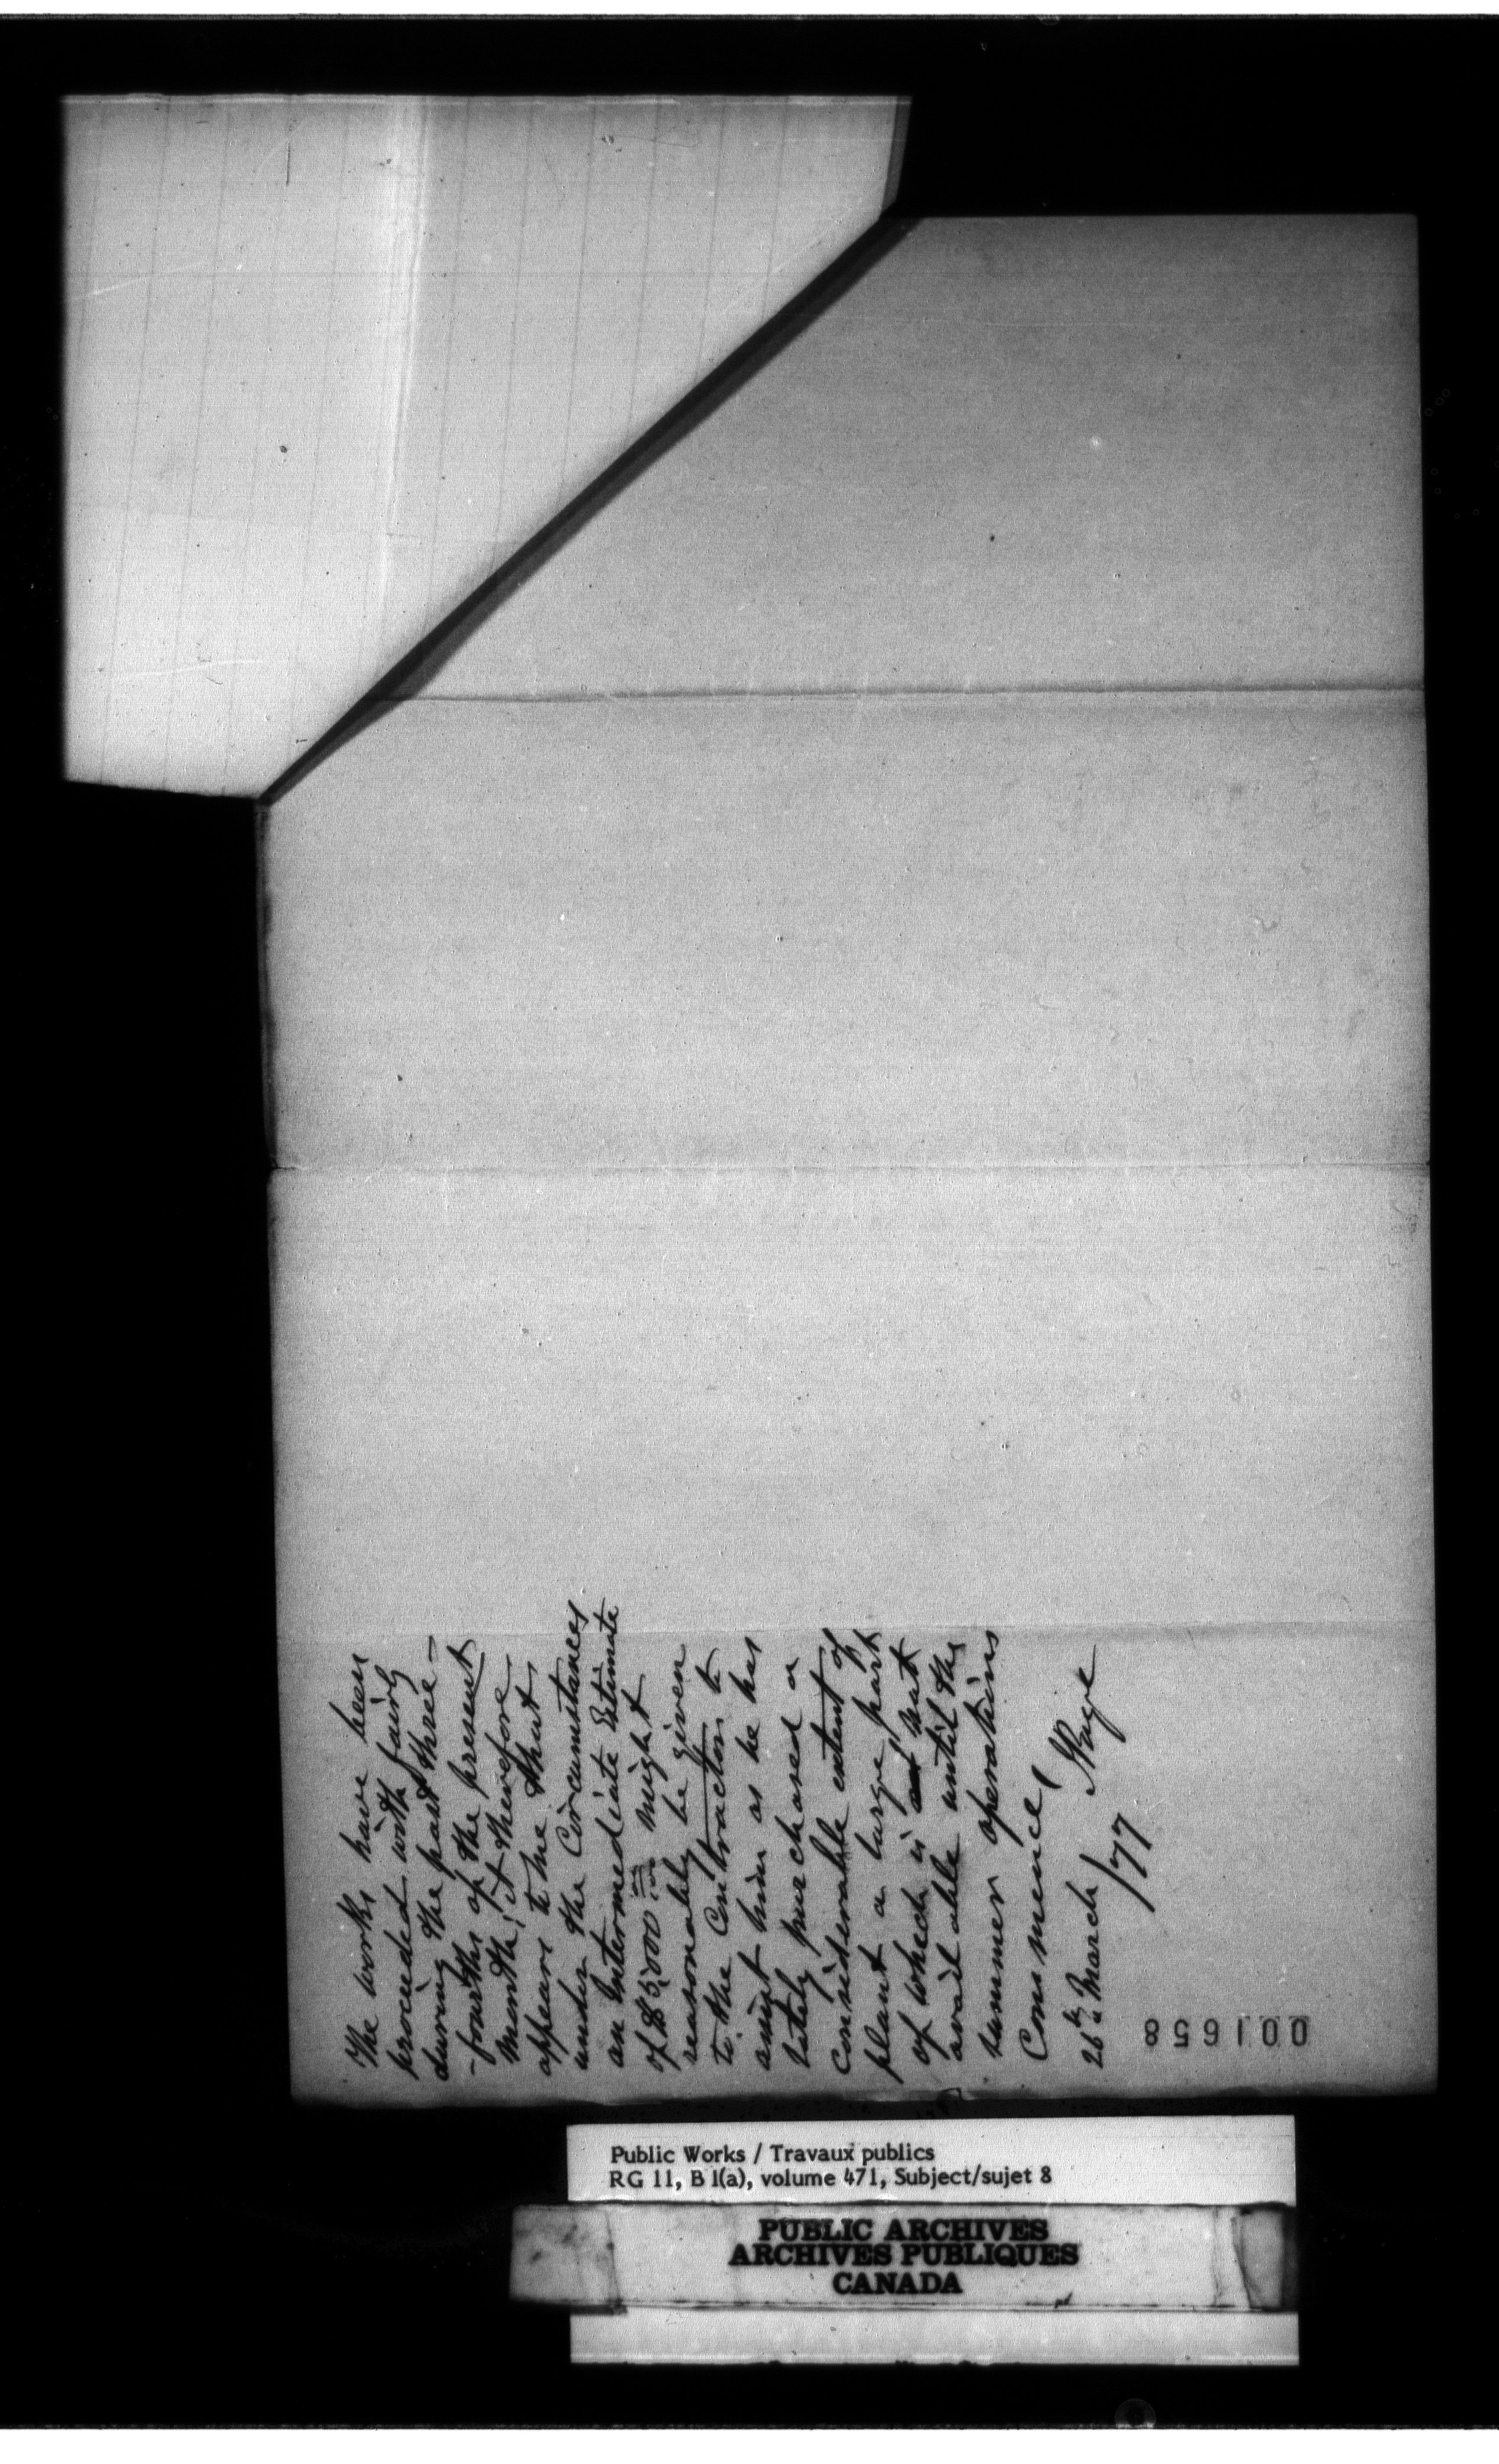 The works have been
proceeded with fairly
during the past three-
-fourths of the present
month; it therefore
appears to me that
under the Circumstances
an Intermediate Estimate
of $5,000 might
reasonably be given
to the Contractor to
assist him as he has
lately purchased a
considerable extent of
plant a large part
of which is not
available until the
summer operations
Commence
J Page
26th March / 77
001658
Public Works / Travaux publics
RG 11, B 1(a), volume 471, Subject/sujet 8
PUBLIC ARCHIVES
ARCHIVES PUBLIQUES
CANADA